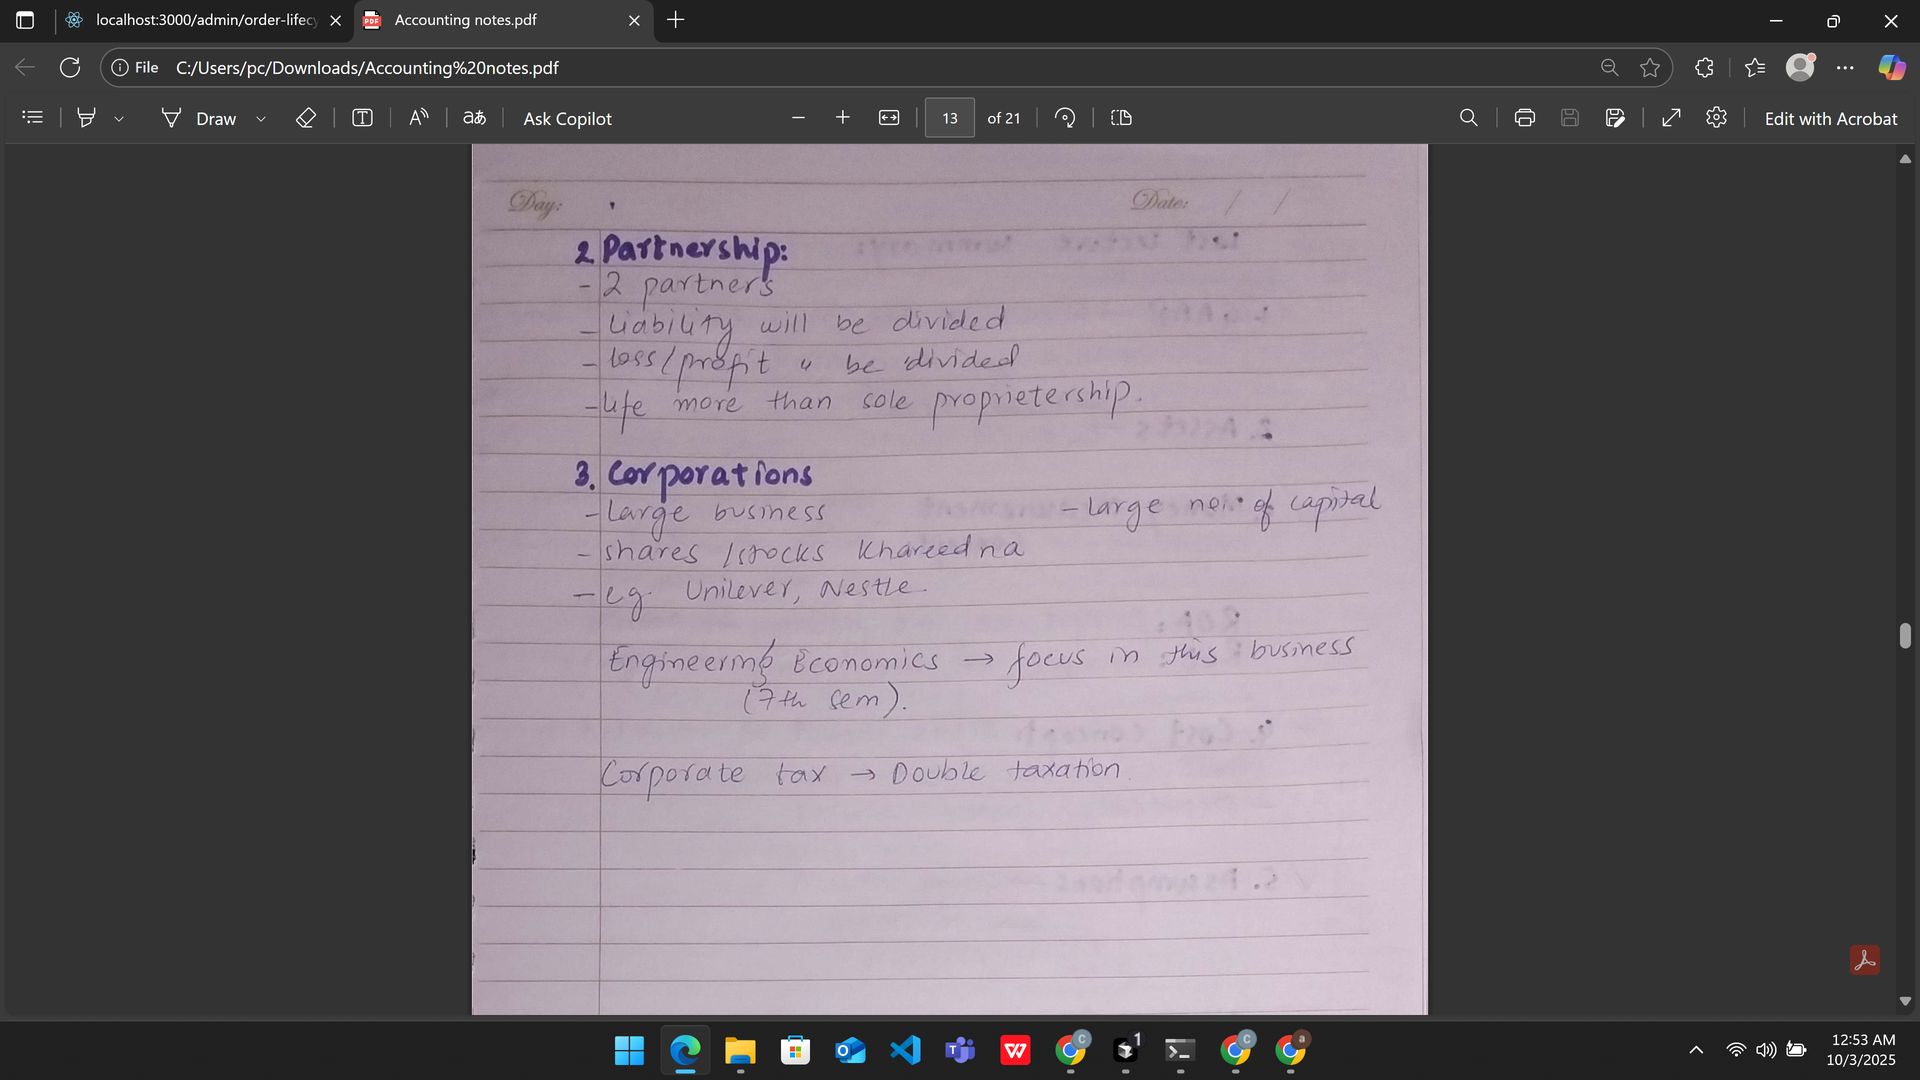 localhost:3000/admin/order-lifecy
Accounting notes.pdf
File C:/Users/pc/Downloads/Accounting%20notes.pdf
Draw
aあ
Ask Copilot
13 of 21
Edit with Acrobat
Day:
Date: / /
2. Partnership:
- 2 partners
- liability will be divided
- loss/profit " be divided
- life more than sole proprietership.
3. Corporations
- Large business - Large no. of capital
- shares /stocks Khareedna
- eg. Unilever, Nestle.
Engineering Economics → focus in this business
(7th sem).
Corporate tax → Double taxation.
12:53 AM
10/3/2025